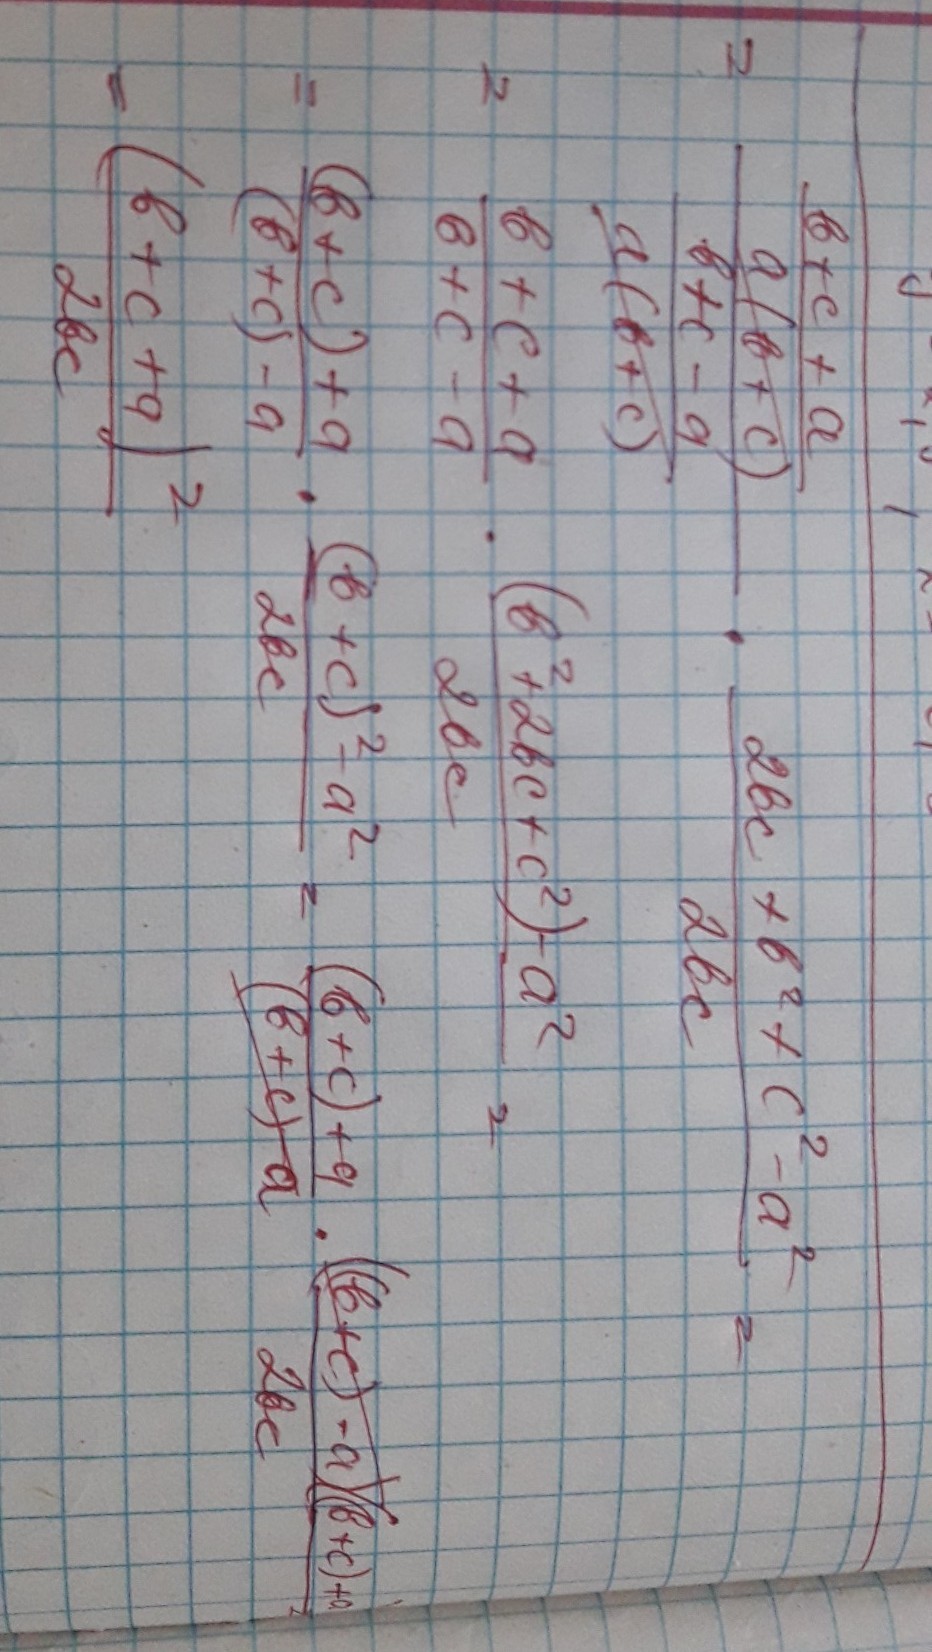 = ((b+c+a)/(a(b+c)))/((b+c-a)/(a(b+c))) · (2bc+b²+c²-a²)/(2bc) =
= (b+c+a)/(b+c-a) · ((b²+2bc+c²)-a²)/(2bc) =
= ((b+c)+a)/((b+c)-a) · ((b+c)²-a²)/(2bc) = ((b+c)+a)/((b+c)-a) · ((b+c)-a)((b+c)+a)/(2bc)
= (b+c+a)²/(2bc)